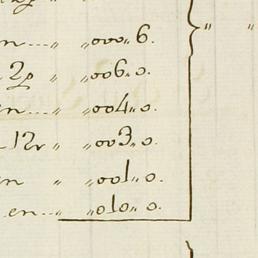 en... „ „000„6.
2p „ „006„0.
en... „ „004„0.
12r „ „003„0.
en „ „001„0.
en... „ „010„0.